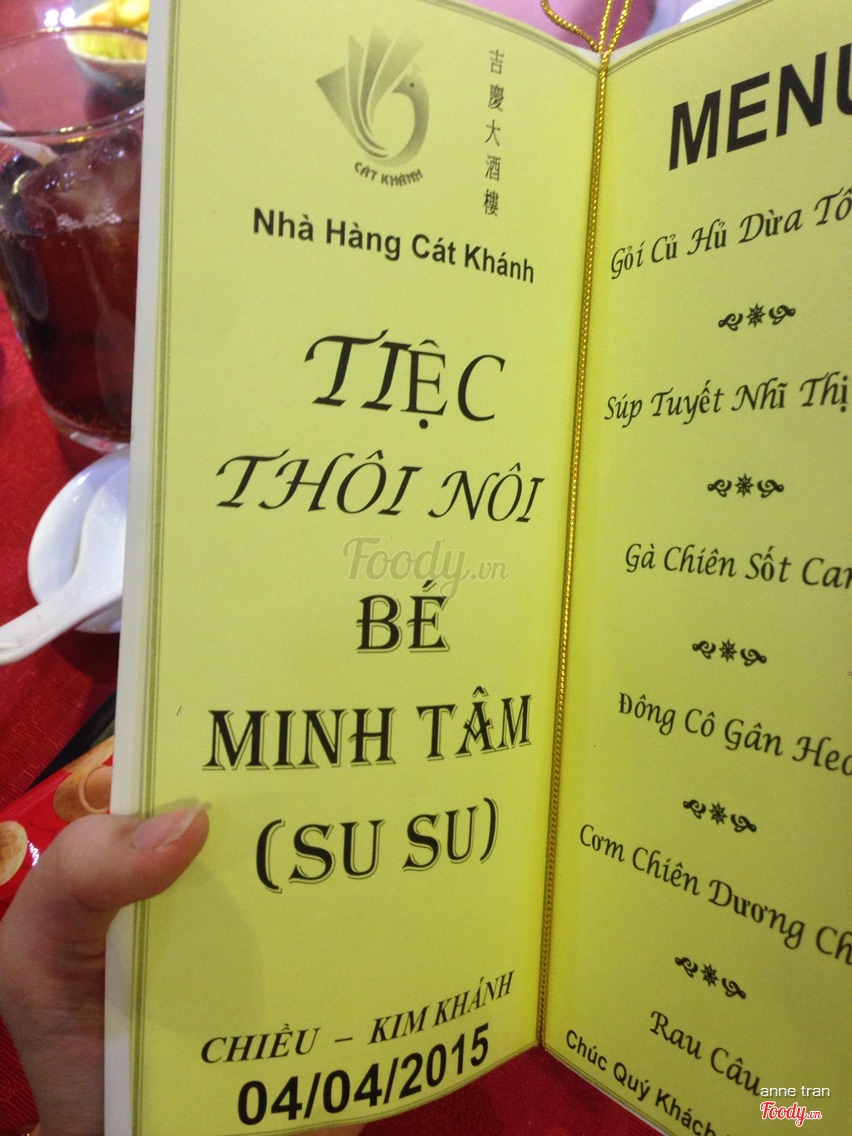 CÁT KHÁNH
吉慶大酒樓
Nhà Hàng Cát Khánh
TIỆC
THÔI NÔI
BÉ
MINH TÂM
(SU SU)
CHIỀU – KIM KHÁNH
04/04/2015
MENU
Gỏi Củ Hủ Dừa Tô
Súp Tuyết Nhĩ Thị
Gà Chiên Sốt Cam
Đông Cô Gân Heo
Cơm Chiên Dương Ch
Rau Câu
Chúc Quý Khách
Foody.vn
anne tran
Foody.vn